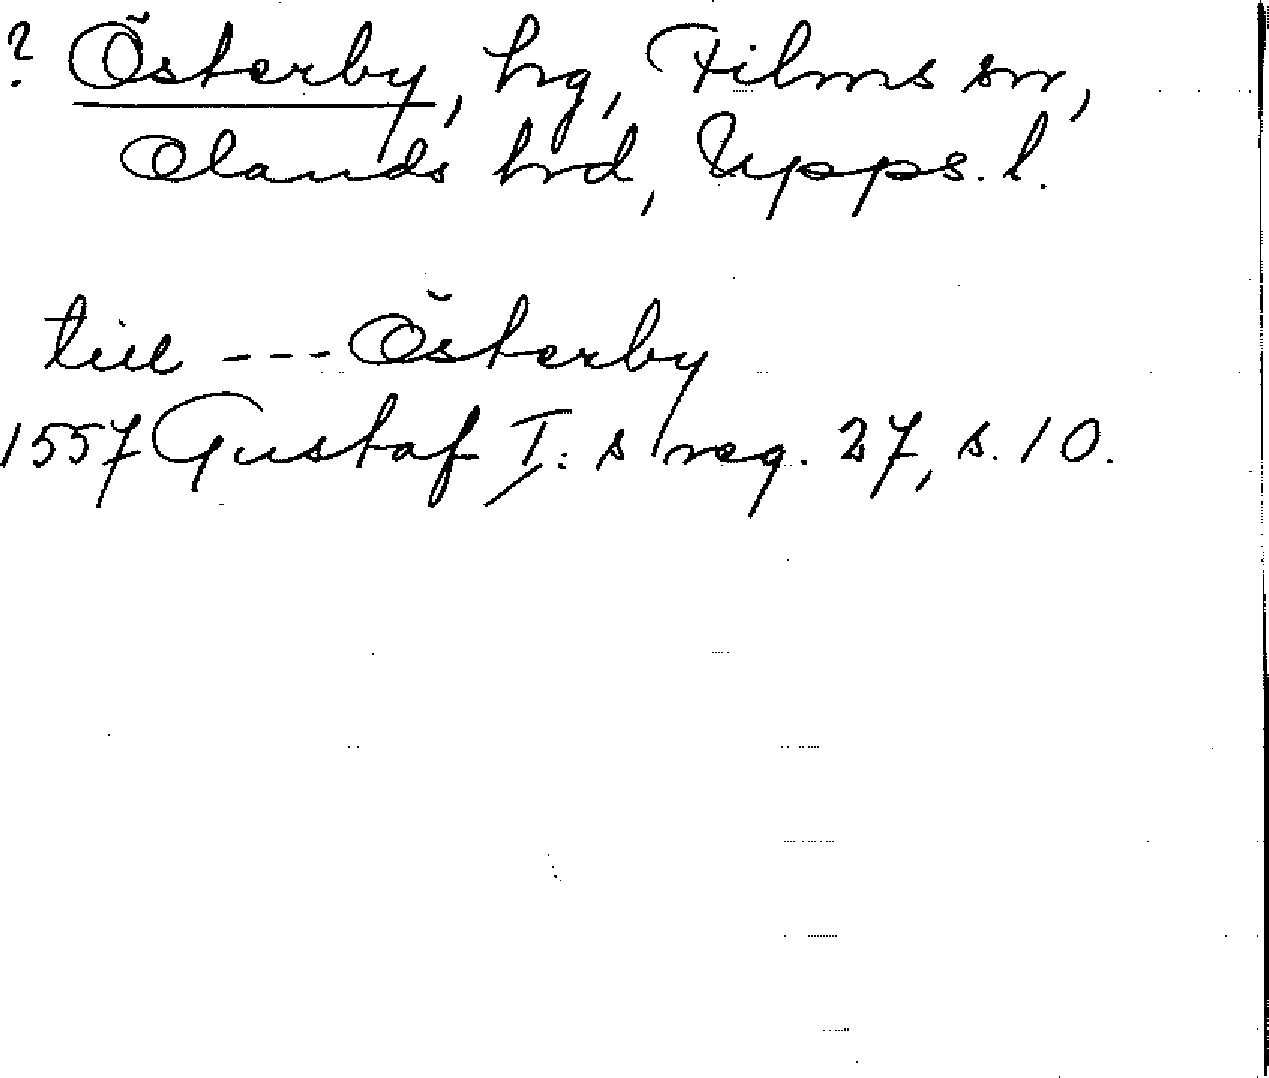 ? Österby, hg, Films sn,
Olands hrd, Upps. l.
till --- Österby
1557 Gustaf I: s reg. 27, s. 10.